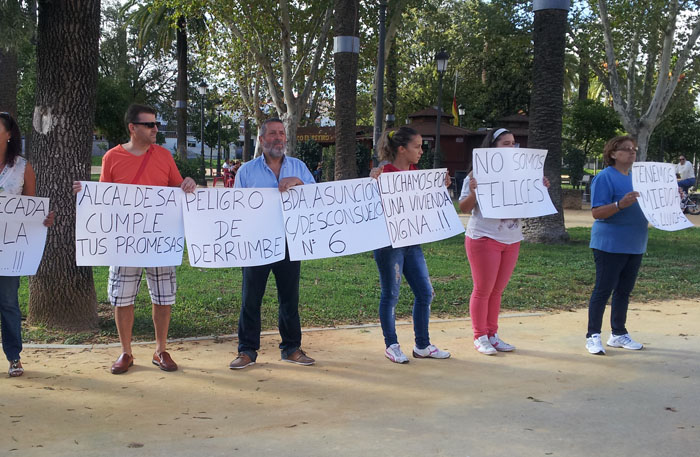 ECADA
LA
...!!!
ALCALDESA
CUMPLE
TUS PROMESAS
PELIGRO
DE
DERRUMBE
BDA ASUNCIÓN
C/DESCONSUELO
Nº 6
LUCHAMOS POR
UNA VIVIENDA
DIGNA...!!
NO SOMOS
FELICES
TENEMOS
MIEDO